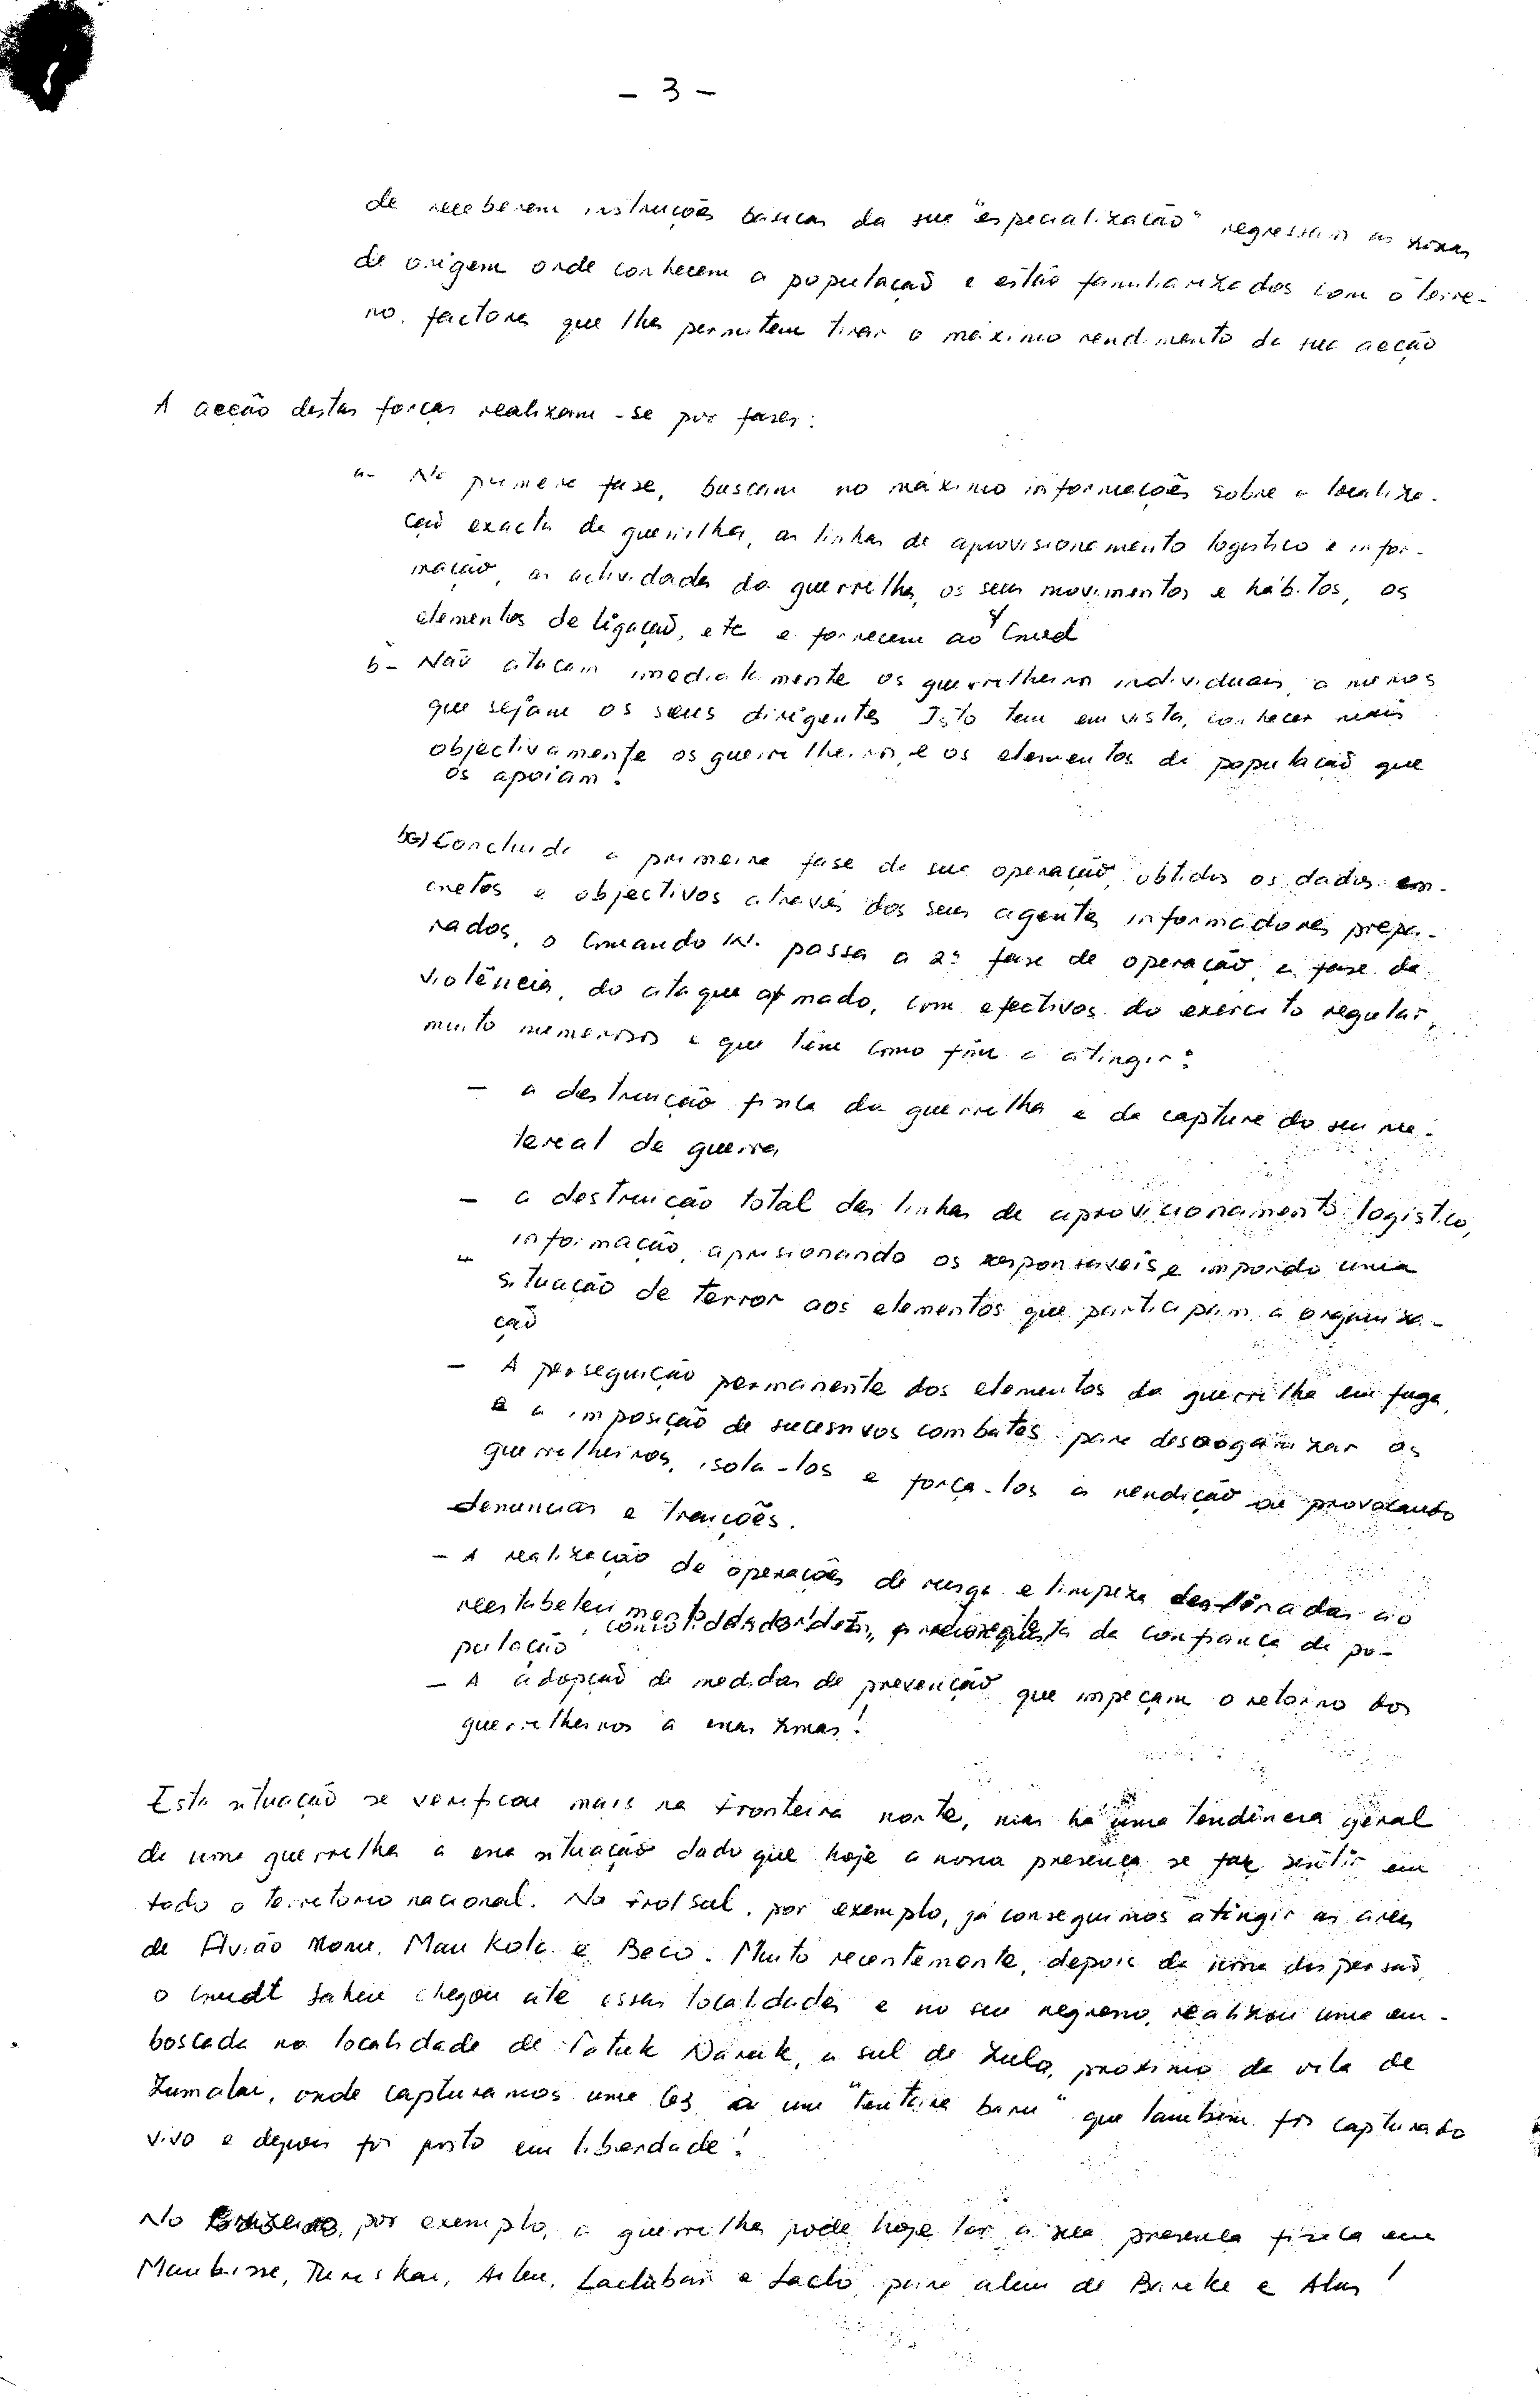 - 3 -
de receberem instruções básicas da sua "especialização" regressam às zonas
de origem onde conhecem a população e estão familiarizados com o terre-
no, factores que lhes permitem tirar o máximo rendimento da sua acção
A acção destas forças realizam-se por fases:
a- Na primeira fase, buscam no máximo informações sobre a localiza-
ção exacta da guerrilha, as linhas de aprovisionamento logístico e infor-
mação, as actividades da guerrilha, os seus movimentos e hábitos, os
elementos de ligação, etc e fornecem ao Cmd
b- Não atacam imediatamente os guerrilheiros individuais, a menos
que sejam os seus dirigentes Isto tem em vista, conhecer mais
objectivamente os guerrilheiros, e os elementos da população que
os apoiam!
Concluida a primeira fase da sua operação, obtidos os dados con-
cretos e objectivos através dos seus agentes informadores prepa-
rados, o Comando IN. passa a 2ª fase de operação, a fase da
violência, do ataque armado, com efectivos do exercito regular,
muito numerosos e que têm como fim a atingir:
- a destruição física da guerrilha e da captura do seu ma-
tereal de guerra
- a destruição total das linhas de aprovicionamento logistico,
informação, aprisionando os responsáveis e impondo uma
situação de terror aos elementos que participam a organiza-
ção
- A perseguição permanente dos elementos da guerrilha em fuga,
e a imposição de sucessivos combates para desorganizar os
guerrilheiros, isola-los e força-los a rendição ou provocando
denuncias e traições.
- A realização de operações de rusga e limpeza destinadas ao
reestabelecimento da ordem, da confiança da po-
pulação
- A adopção de medidas de prevenção que impeçam o retorno dos
guerrilheiros a essas zonas!
Esta situação se verificou mais na fronteira norte, mas há uma tendência geral
de uma guerrilha a essa situação dado que hoje a nossa presença se faz sentir em
todo o territorio nacional. Na frot sul, por exemplo, já conseguimos atingir as áreas
de Avião Monu, Mau Kola e Beco. Muito recentemente, depois de uma dispersão,
o Cmdt chegou até essas localidades e no seu regresso, realizou uma em-
boscada na localidade de Fatuk, a sul de Zulo, próximo da vila de
Zumalai, onde capturamos uma G3 a um que também foi capturado
vivo e depois foi posto em liberdade!
No por exemplo, a guerrilha pode hoje ter a sua presença física em
Maubisse, Turiskai, Aileu, Laclubar e Laclo, para alem de Barike e Alas!